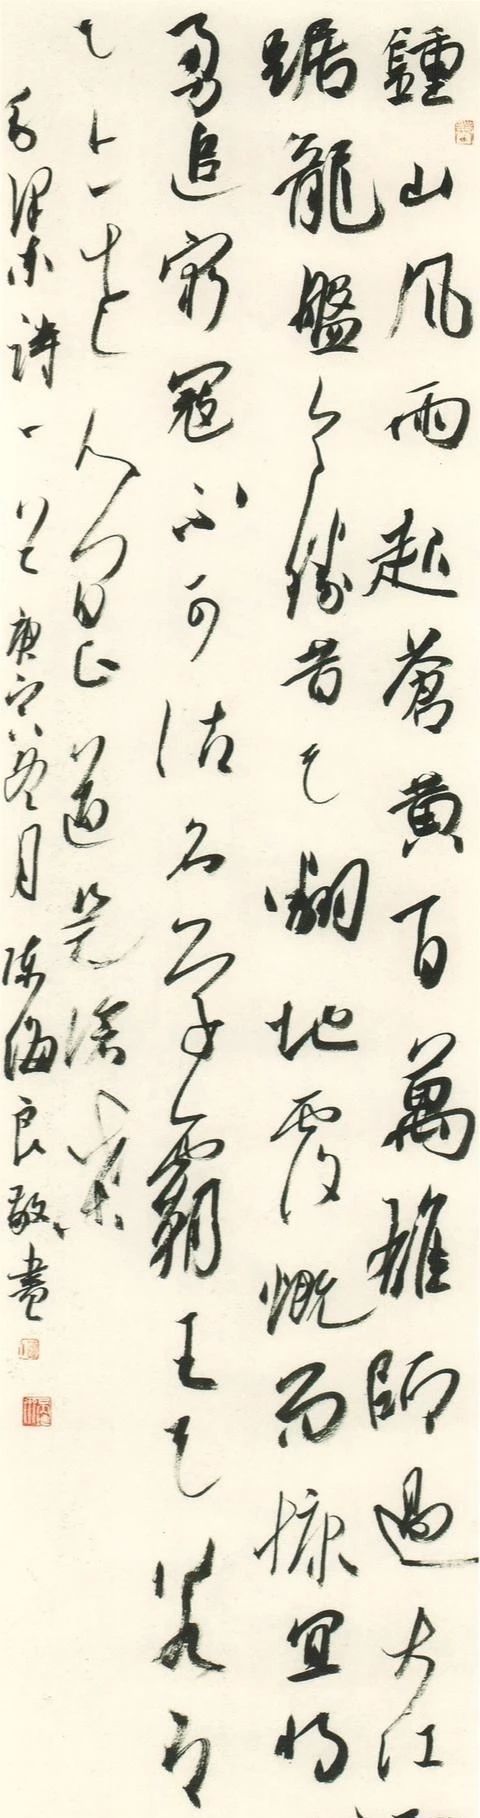 鍾山風雨起蒼黃百萬雄師過大江
踞龍盤今勝昔天翻地覆慨而慷宜將
勇追窮寇不可沽名學霸王天若有
天亦老人間正道是滄桑
毛澤東詩一首 庚寅冬月 陳海良敬書